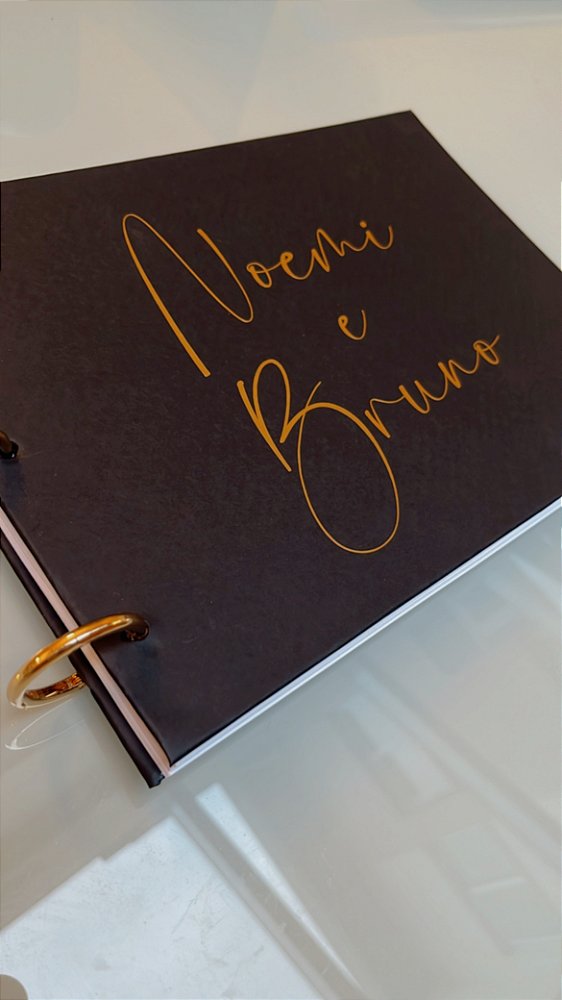 Noemi
e
Bruno